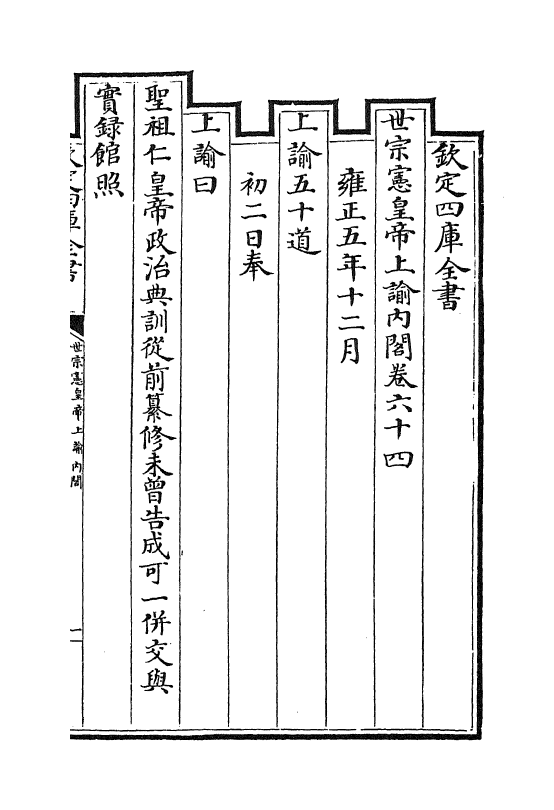 欽定四庫全書
世宗憲皇帝上諭內閣卷六十四
雍正五年十二月
上諭五十道
初二日奉
上諭曰
聖祖仁皇帝政治典訓從前纂修未曾告成可一併交與
實録館照
欽定四庫全書
世宗憲皇帝上諭內閣
一